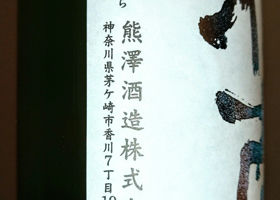 ら
熊澤酒造株式
神奈川県茅ケ崎市香川7丁目
10